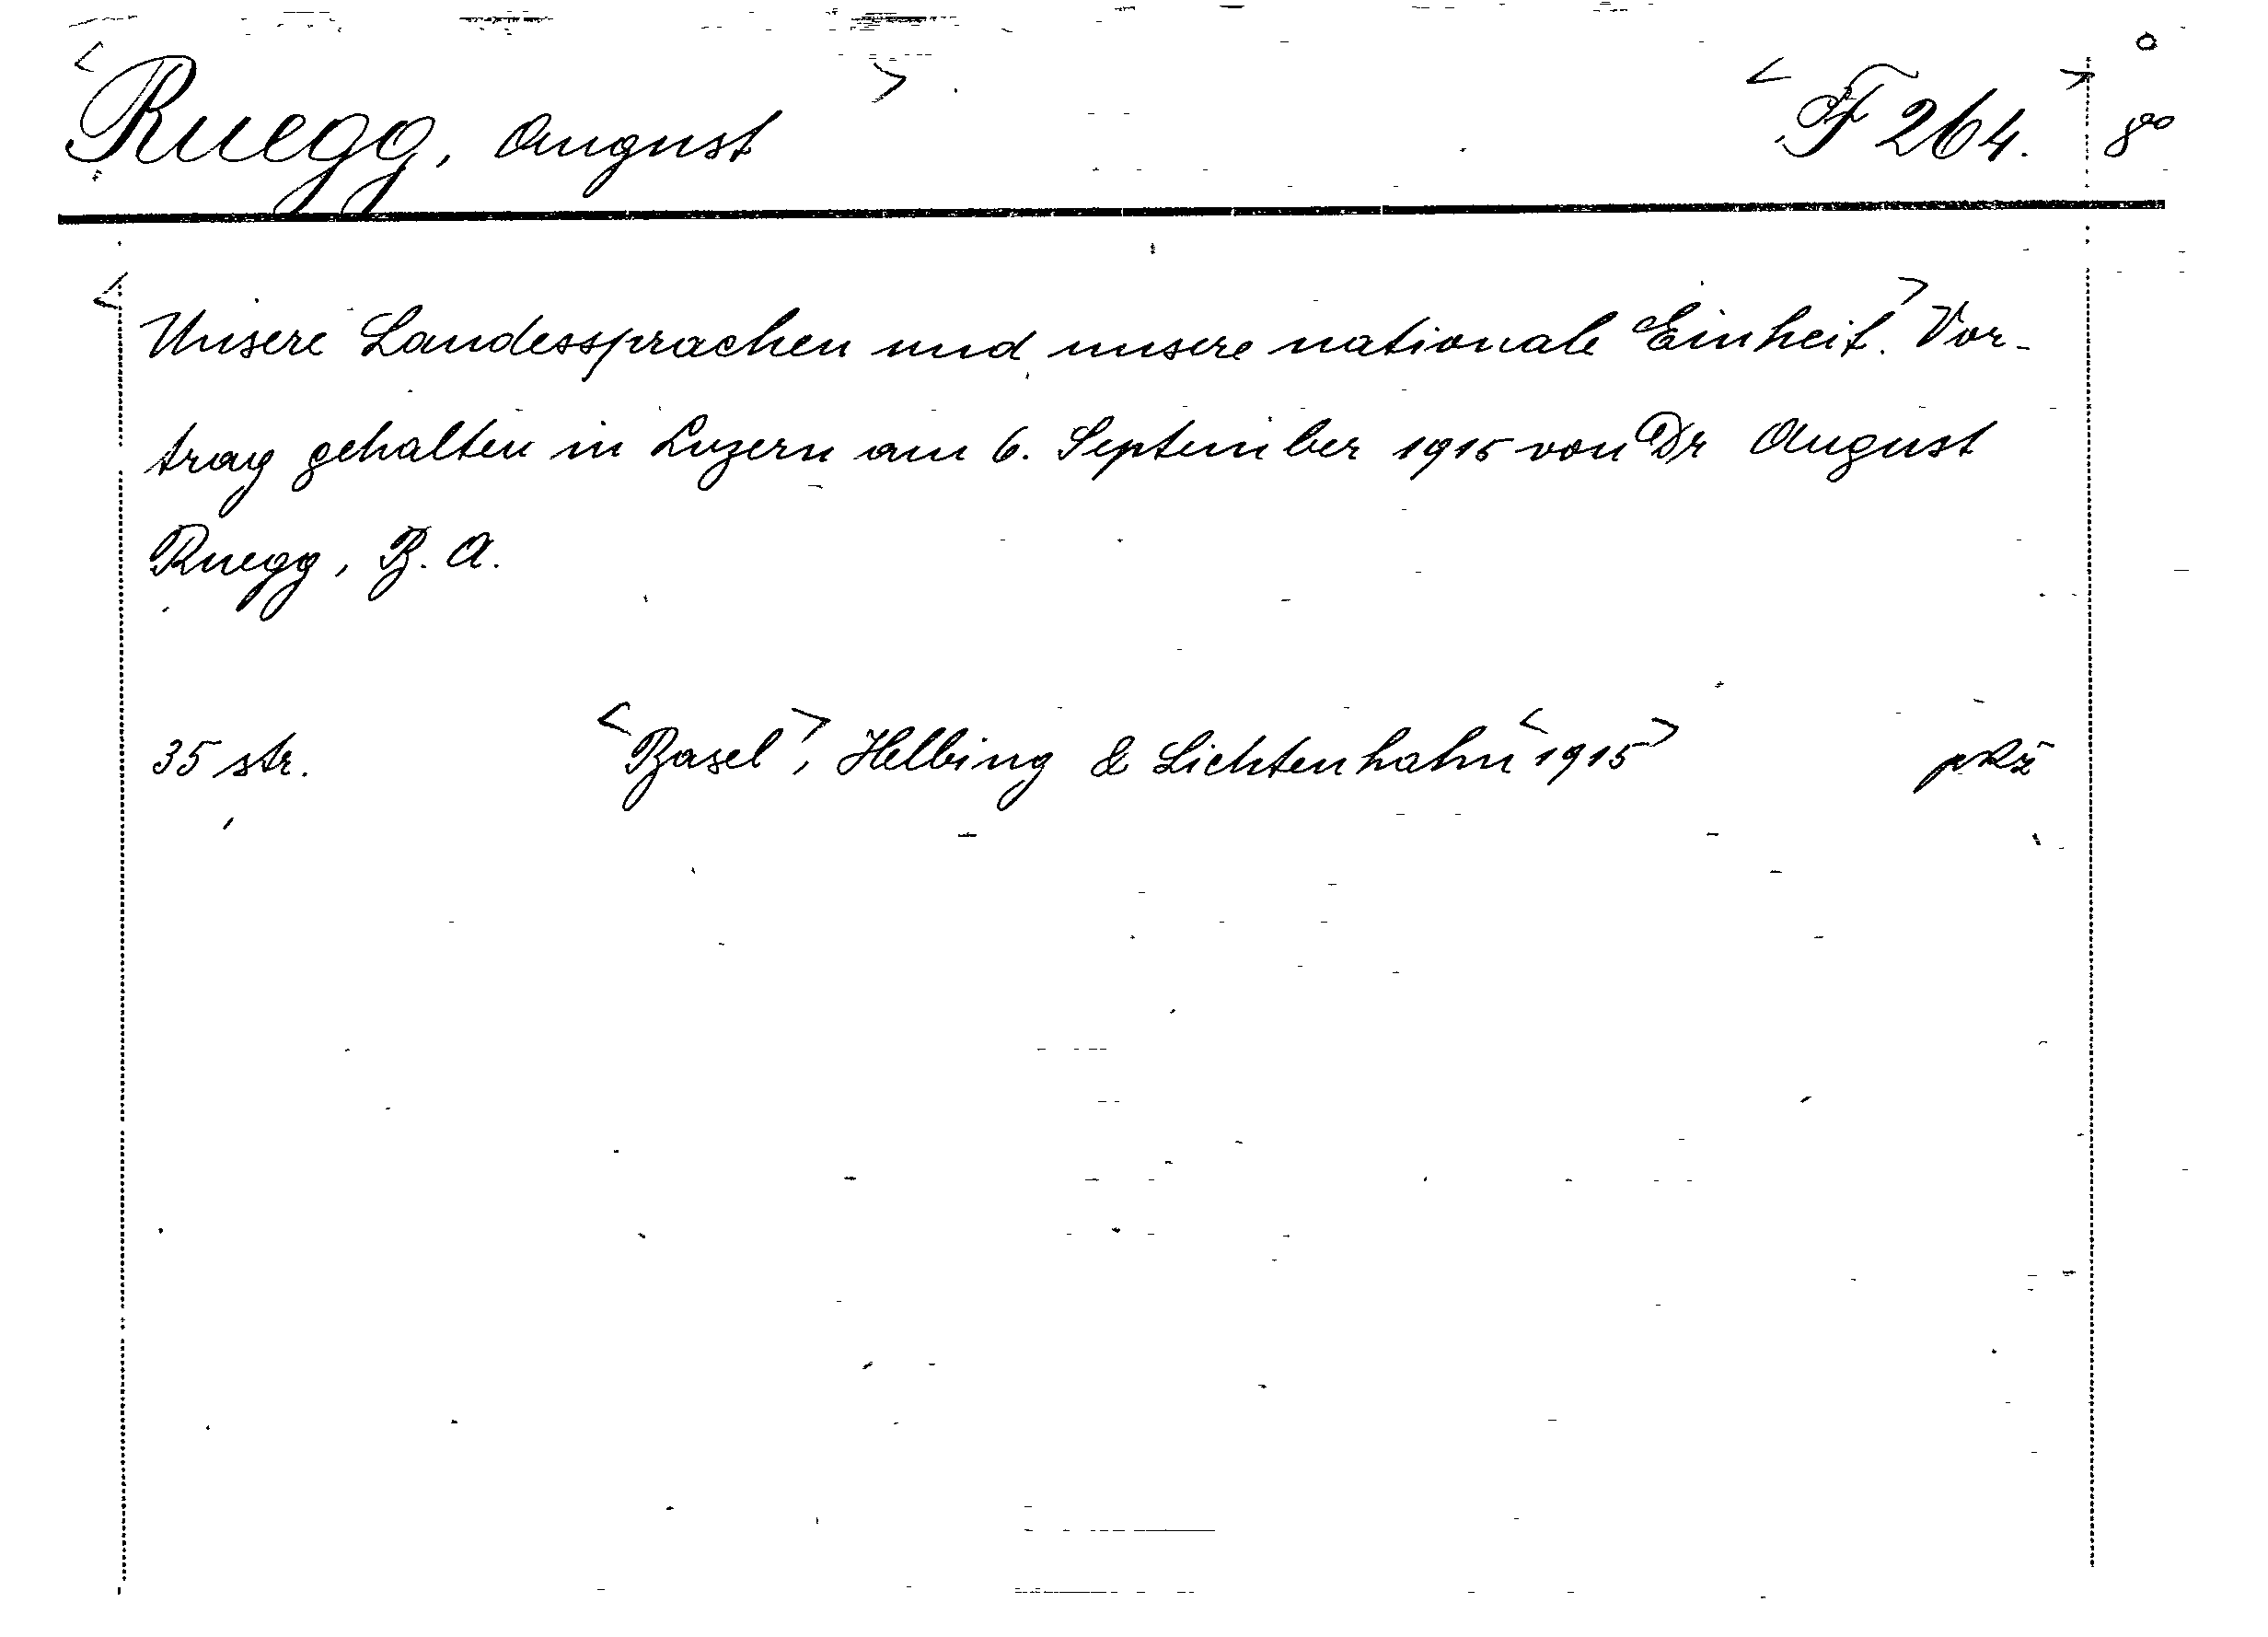 <Ruegg, August> <F 264.> 8°
<Unsere Landessprachen und unsere nationale Einheit.> Vor-
trag gehalten in Luzern am 6. September 1915 von Dr August
Ruegg, B. A.
35 str. <Basel>, Helbing & Lichtenhahn <1915>